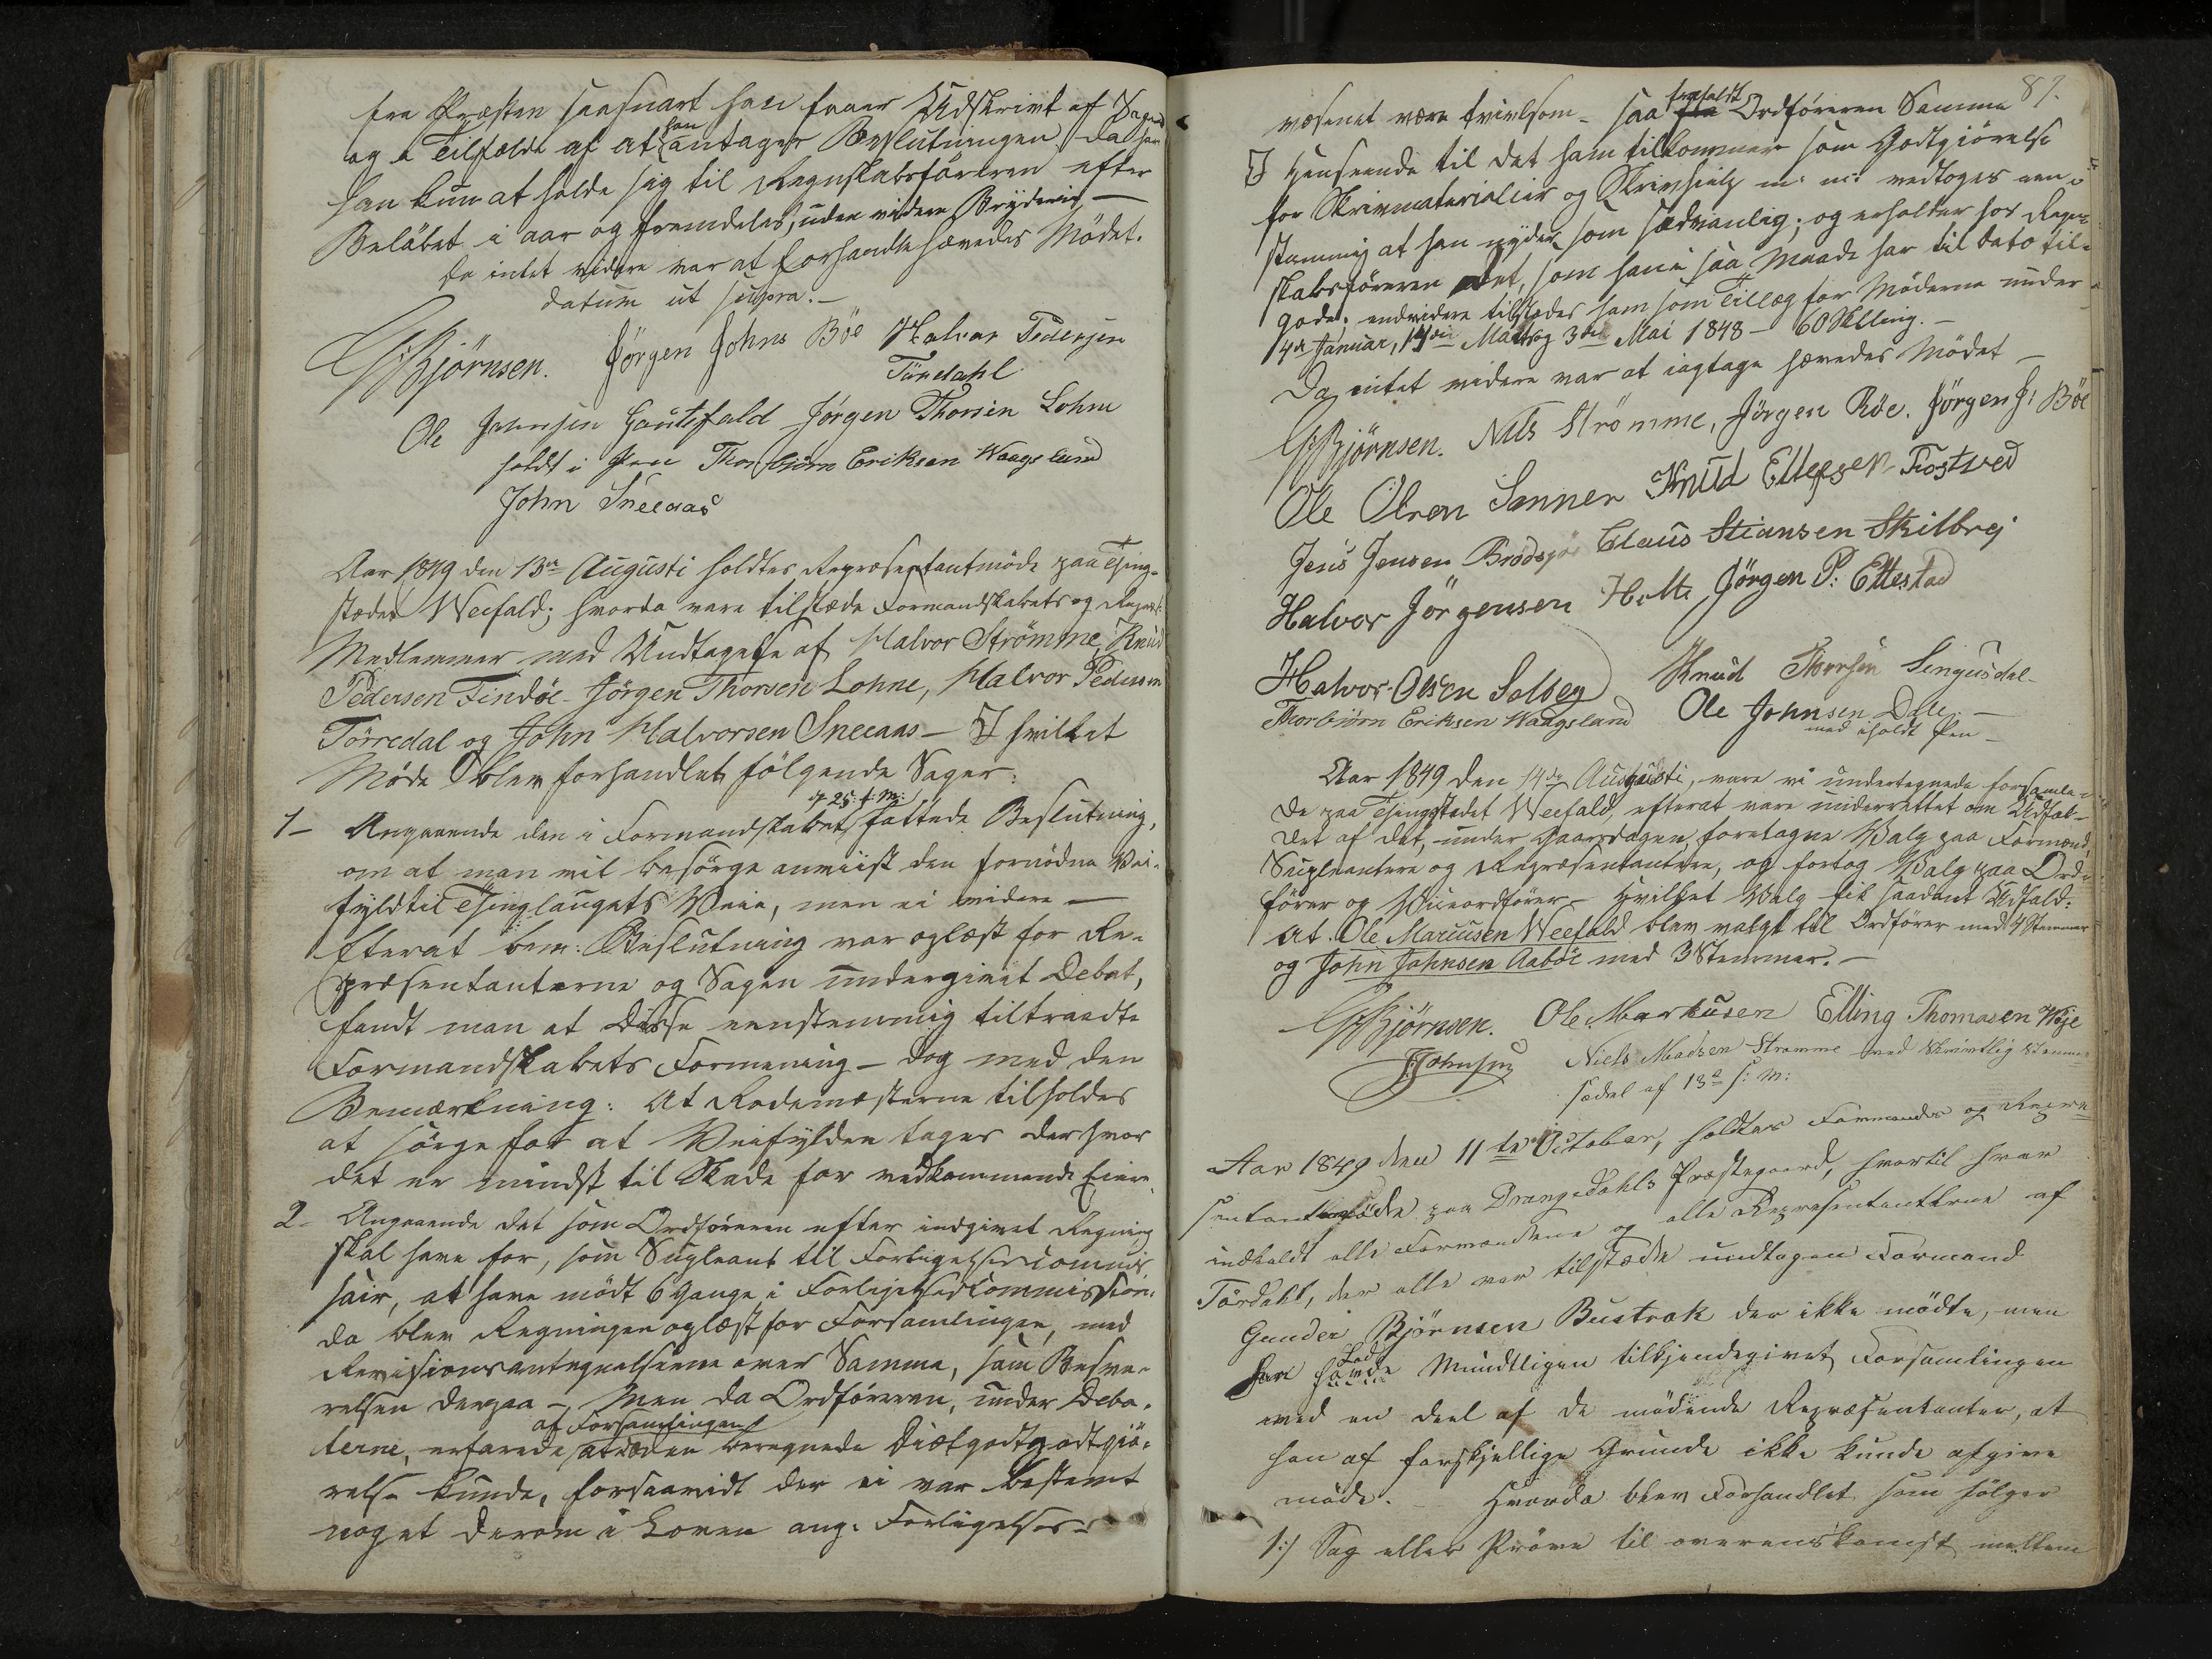 fra Præsten saasnart han faaer Udskrivt af Sagen
og i Tilfælde af at han antager Beslutningen da har
han kun at holde sig til Regnskabsføreren efter
Beløbet i aar og fremdeles, uden videre Bryderie —
Da intet videre var at forhandle hævedes Mödet.
datum ut supra. —
GBjörnsen. Jörgen Johns Böe Halvor Pedersen
Törredahl
Ole Johnsen Gautefald Jörgen Thorsen Lohne
holdt i Pen Thorbjörn Eriksen Waagsland
John Sneeaas
Aar 1849 den 13de Augusti holdtes Repræsentantmöde paa Thing-
stædet Weefald; hvorda vare tilstæde Formandskabets og Repræs:
Medlemmer med Undtagelse af Halvor Strömme, Knud
Pedersen Tindöe - Jörgen Thorsen Lohne, Halvor Pedersen
Törredal og John Halvorsen Sneeaas — I hvilket
Möde blev forhandlet fölgende Sager:
1 — Angaaende den i Formandskabet d 25: f: M: fattede Beslutning,
om at man vil besörge anviist den fornödne Vei-
fyld til Thinglaugets Veie, men ei videre —
Efterat bem: Beslutning var oplæst for Re-
præsentanterne og Sagen undergivet Debat,
fandt man at disse eenstemmig tiltraadte
Formandskabets Formening — dog med den
Bemærkning: At Rodemesterne tilholdes
at sörge for at Veifylden tages der hvor
det er mindst til Skade for vedkommende Eiere
2 - Angaaende det som Ordföreren efter indgivet Regning
skal have for, som Supleant til Forligelsescommis-
sair, at have mödt 6 Gange i Forligelsescommission:
da blev Regningen oplæst for Forsamlingen, med
Revisionsantegnelserne over Samme, som Besva-
relsen derpaa —, Men da Ordföreren, under Deba-
terne, erfarede af Forsamlingen at den beregnede Diætgodtgjö-
relse kunde, forsaavidt der ei var bestemt
noget derom i Loven ang: Forligelses-
87.
væsenet være tvivlsom — saa frafaldt Ordföreren Samme
I Henseende til det ham tilkommer som Godtgjörelse
for Skrivmaterialier og Skrivhielp m: m: vedtoges een-
stemmig at han nyder som sædvanlig; og erholder hos Regn-
skabsföreren det, som han i saa Maade har til dato til-
gode; endvidere tilstodes ham som Tillæg for Möderne under
4de Januar, 14de Marts og 3die Mai 1848 — 60 Skilling. —
Da intet videre var at iagtage hævedes Mödet —
GBjörnsen. Nils Strömme, Jörgen Röe. Jörgen J: Böe
Ole Olsen Sanner Knud Ellefsen Tostved
Jens Jensen Brödsjöe Claus Stiansen Skilbrej
Halvor Jörgensen Holte Jörgen P: Ettestad
Halvor Olsen Solberg Knud Thorsen Lingusdal
Thorbjörn Eriksen Waagsland Ole Johnsen Dale —
med iholdt Pen —
Aar 1849 den 14de Augusti, vare vi undertegnede forsamle-
de paa Thingstedet Weefald, efterat være underrettet om Udfal-
det af det, under Gaarsdagen, foretagne Valg paa Formænd,
Supleantere og Repræsentantere, og fortog Valg paa Ord-
förer og Viceordförer — Hvilket Valg fik saadant Udfald:
at Ole Marcusen Weefald blev valgt til Ordförer med 4 Stemmer
og John Johnsen Aaböe med 3 Stemmer. —
GBjörnsen. Ole Markusen Elling Thomasen Woje
JJohnsen Niels Madsen Strömme med skrivtlig Stemme-
sædel af 13de d: M:
Aar 1849 den 11te October, holdtes Formands og Repræ-
sentantmöde paa Drangedahls Præstegaard, hvortil var
indkaldt alle Formændene og alle Repræsentanterne af
Tördahl, der alle var tilstæde undtagen Formand
Gunder Björnsen Bustrak der ikke mödte, men
Lod Mundtligen tilkjendegivet Forsamlingen
ved en deel af de mödende Repræsentanter, at
han af forskjellige Grunde ikke kunde afgive
möde. — Hvorda blev Forhandlet som fölger
1:) Sag eller Pröve til overenskomst mellem